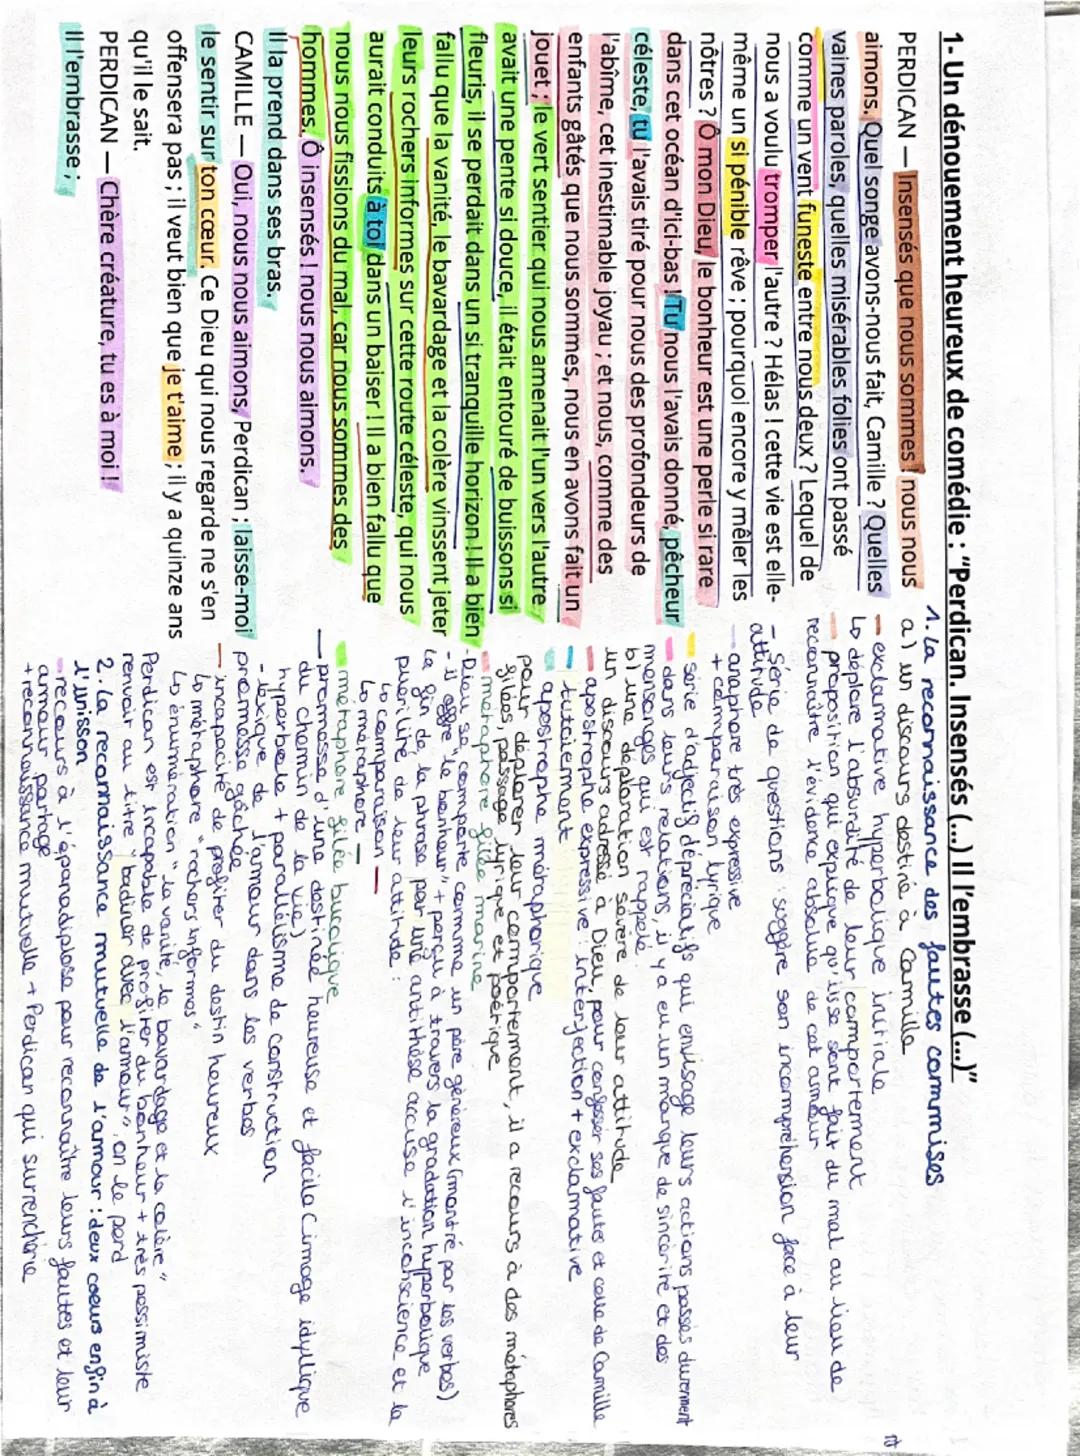 1- Un dénouement heureux de comédie : "Perdican. Insensés (...) Il l'embrasse (...)"
PERDICAN — Insensés que nous sommes ! nous nous
aimons. Quel songe avons-nous fait, Camille ? Quelles
vaines paroles, quelles misérables folies ont passé
comme un vent funeste entre nous deux ? Lequel de
nous a voulu tromper l'autre ? Hélas ! cette vie est elle-
même un si pénible rêve ; pourquoi encore y mêler les
nôtres ? Ô mon Dieu, le bonheur est une perle si rare
dans cet océan d'ici-bas ! Tu nous l'avais donné, pêcheur
céleste, tu l'avais tiré pour nous des profondeurs de
l'abîme, cet inestimable joyau ; et nous, comme des
enfants gâtés que nous sommes, nous en avons fait un
jouet ; le vert sentier qui nous amenait l'un vers l'autre
avait une pente si douce, il était entouré de buissons si
fleuris, il se perdait dans un si tranquille horizon ! Il a bien
fallu que la vanité, le bavardage et la colère vinssent jeter
leurs rochers informes sur cette route céleste, qui nous
aurait conduits à toi dans un baiser ! Il a bien fallu que
nous nous fissions du mal, car nous sommes des
hommes. Ô insensés ! nous nous aimons.
Il la prend dans ses bras.
CAMILLE — Oui, nous nous aimons, Perdican ; laisse-moi
le sentir sur ton cœur. Ce Dieu qui nous regarde ne s'en
offensera pas ; il veut bien que je t'aime ; il y a quinze ans
qu'il le sait.
PERDICAN — Chère créature, tu es à moi !
Il l'embrasse ;
1. La reconnaissance des fautes commises
a) un discours destiné à Camille
— exclamative hyperbolique initiale
↳ déplore l'absurdité de leur comportement
— proposition qui explique qu'ils se sont fait du mal au lieu de
reconnaître l'évidence absolue de cet amour
- Série de questions : suggère son incompréhension face à leur
attitude
— anaphore très expressive
+ comparaison lyrique
— série d'adjectifs dépréciatifs qui envisage leurs actions passés durement
— dans leurs relations, il y a eu un manque de sincérité et des
mensonges qui est rappelé
b) une déploration sévère de leur attitude
un discours adressé à Dieu, pour confesser ses fautes et celle de Camille
— apostrophe expressive : interjection + exclamative
— tutoiement
— apostrophe métaphorique
pour déplorer leur comportement, il a recours à des métaphores
filées, passage lyrique et poétique
— métaphore filée marine
- Dieu se comporte comme un père généreux (montré par les verbes)
- il offre "le bonheur" + perçu à travers la gradation hyperbolique
La fin de la phrase par une antithèse accuse l'inconscience et la
puérilité de leur attitude :
↳ comparaison —
↳ métaphore —
— métaphore filée bucolique
— promesse d'une destinée heureuse et facile (image idyllique
du chemin de la vie)
hyperbole + parallélisme de construction
- lexique de l'amour dans les verbes
promesse gâchée
— incapacité de profiter du destin heureux
↳ métaphore "rochers informes"
↳ énumération "la vanité, le bavardage et la colère"
Perdican est incapable de profiter du bonheur + très pessimiste
renvoi au titre "badiner avec l'amour", on le perd
2. La reconnaissance mutuelle de l'amour : deux coeurs enfin à
l'unisson
— recours à l'épanadiplose pour reconnaître leurs fautes et leur
amour partagé
+ reconnaissance mutuelle + Perdican qui surenchérie